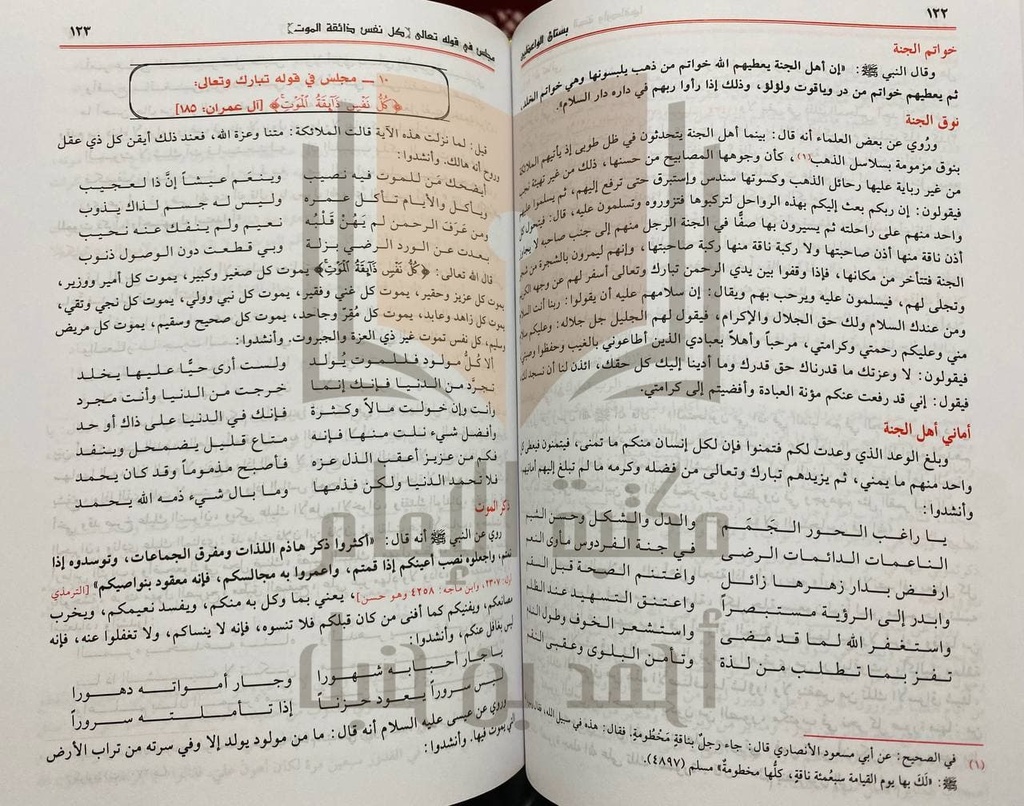 ١٢٢
بستان الواعظين
خواتم الجنة
وقال النبي ﷺ: «إن أهل الجنة يعطيهم الله خواتم من ذهب يلبسونها وهي خواتم الخلد
ثم يعطيهم خواتم من در وياقوت ولؤلؤ، وذلك إذا رأوا ربهم في داره دار السلام».
نوق الجنة
ورُوي عن بعض العلماء أنه قال: بينما أهل الجنة يتحدثون في ظل طوبى إذ يأتيهم الملائكة
بنوق مزمومة بسلاسل الذهب(١)، كأن وجوهها المصابيح من حسنها، ذلك من غير تهيئة نجب
من غير رباية عليها رحائل الذهب وكسوتها سندس وإستبرق حتى ترفع إليهم، ثم يسلموا عليهم
فيقولون: إن ربكم بعث إليكم بهذه الرواحل لتركبوها فتزوروه وتسلمون عليه، قال: فيتحول كل
واحد منهم على راحلته ثم يسيرون بها صفًّا في الجنة الرجل منهم إلى جنب صاحبه لا يجاوز
أذن ناقة منها أذن صاحبتها ولا ركبة ناقة منها ركبة صاحبتها، وإنهم ليمرون بالشجرة من شجر
الجنة فتتأخر من مكانها، فإذا وقفوا بين يدي الرحمن تبارك وتعالى أسفر لهم عن وجهه الكريم
وتجلى لهم، فيسلمون عليه ويرحب بهم ويقال: إن سلامهم عليه أن يقولوا: ربنا أنت السلام
ومن عندك السلام ولك حق الجلال والإكرام، فيقول لهم الجليل جل جلاله: وعليكم سلام
مني وعليكم رحمتي وكرامتي، مرحباً وأهلاً بعبادي الذين أطاعوني بالغيب وحفظوا وصيتي
فيقولون: لا وعزتك ما قدرناك حق قدرك وما أدينا إليك كل حقك، ائذن لنا أن نسجد لك
فيقول: إني قد رفعت عنكم مؤنة العبادة وأفضيتم إلى كرامتي.
أماني أهل الجنة
وبلغ الوعد الذي وعدت لكم فتمنوا فإن لكل إنسان منكم ما تمنى، فيتمنون فيعطى
واحد منهم ما يمني، ثم يزيدهم تبارك وتعالى من فضله وكرمه ما لم تبلغ إليهم أمانيهم
وأنشدوا:
يا راغب الحور الجَمَم والدل والشكل وحسن الشيم
الناعمات الدائمات الرضى في جنة الفردوس مأوى النعم
ارفض بدار زهرها زائل واغتنم الصيحة قبل
وابدر إلى الرؤية مستبصراً واعتنق التسهيد عند
واستغفر الله لما قد مضى واستشعر الخوف وطول
تفز بما تطلب من لذة وتأمن البلوى وعقبى
(١) في الصحيح: عن أبي مسعود الأنصاري قال: جاء رجلٌ بناقةٍ مَخْطُومةٍ، فقال: هذه في سبيل الله، فقال
ﷺ: «لَكَ بها يوم القيامة سبعُمئة ناقةٍ، كلُّها مخطومةٌ» مسلم (٤٨٩٧).
مجلس في قوله تعالى {كل نفس ذائقة الموت}
١٢٣
١٠ ــ مجلس في قوله تبارك وتعالى:
﴿كُلُّ نَفْسٍ ذَآئِقَةُ ٱلْمَوْتِ﴾ [آل عمران: ١٨٥]
قيل: لما نزلت هذه الآية قالت الملائكة: متنا وعزة الله، فعند ذلك أيقن كل ذي عقل
وروح أنه هالك. وأنشدوا:
أيضحك مَن للموت فيه نصيب وينعَم عيشاً إنَّ ذا لعجيب
ويأكل والأيام تأكل عمره وليس له جسم لذاك يذوب
ومن عَرَفَ الرحمن لم يَهُنْ قَلْبُه نعيم ولم ينفك عنه نحيب
بعدت عن الورد الرضي بزلة وبي قطعت دون الوصول ذنوب
قال الله تعالى: ﴿كُلُّ نَفْسٍ ذَآئِقَةُ ٱلْمَوْتِ﴾ يموت كل صغير وكبير، يموت كل أمير ووزير،
يموت كل عزيز وحقير، يموت كل غني وفقير، يموت كل نبي وولي، يموت كل نجي وتقي،
يموت كل زاهد وعابد، يموت كل مُقِرّ وجاحد، يموت كل صحيح وسقيم، يموت كل مريض
وسليم، كل نفس تموت غير ذي العزة والجبروت. وأنشدوا:
ألا كُلُّ مولود فللموت يُولد ولست أرى حيًّا عليها يخلد
تجرَّد من الدنيا فإنك إنما خرجت من الدنيا وأنت مجرد
وأنت وإن خولت مالاً وكثرة فإنك في الدنيا على ذاك أو حد
وأفضل شيء نلت منها فإنه متاع قليل يضمحل وينفد
فكم من عزيز أعقب الذل عزه فأصبح مذموماً وقد كان يحمد
فلا تحمد الدنيا ولكن فذمها وما بال شيء ذمه الله يحمد
ذكر الموت
روي عن النبي ﷺ أنه قال: «أكثروا ذكر هاذم اللذات ومفرق الجماعات، وتوسدوه إذا
نمتم، واجعلوه نصب أعينكم إذا قمتم، واعمروا به مجالسكم، فإنه معقود بنواصيكم» [الترمذي
٢٣٠٧، وابن ماجه: ٤٢٥٨ وهو حسن]، يعني بما وكل به منكم، ويفسد نعيمكم، ويخرب
مصانعكم، ويفنيكم كما أفنى من كان قبلكم فلا تنسوه، فإنه لا ينساكم، ولا تغفلوا عنه، فإنه
ليس بغافل عنكم، وأنشدوا:
يا جار أحبابه شهورا وجار أمواته دهورا
ليس سروراً يعود حزناً إذا تأملته سروراً
وروي عن عيسى عليه السلام أنه قال: ما من مولود يولد إلا وفي سرته من تراب الأرض
التي يموت فيها. وأنشدوا:
مكتبة الإمام
أحمد بن حنبل